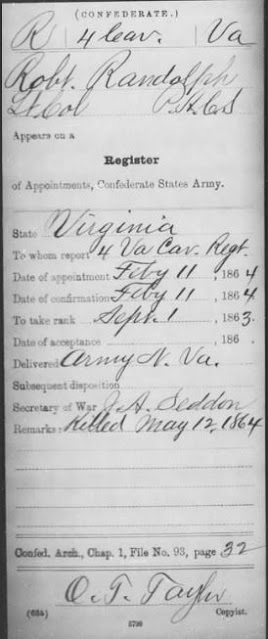 (CONFEDERATE.)
R 4 Cav. Va
Robt. Randolph
Lt. Col P.A.C.S
Appears on a
Register
of Appointments, Confederate States Army.
State Virginia
To whom report 4 Va Cav. Regt.
Date of appointment Feby 11, 1864
Date of confirmation Feby 11, 1864.
To take rank Sept. 1, 1863.
Date of acceptance , 186 .
Delivered Army N. Va.
Subsequent disposition
Secretary of War J. A. Seddon
Remarks: Killed May 12, 1864
Confed. Arch., Chap. 1, File No. 93, page 32
O. T. Taylor
(65a) Copyist.
5799